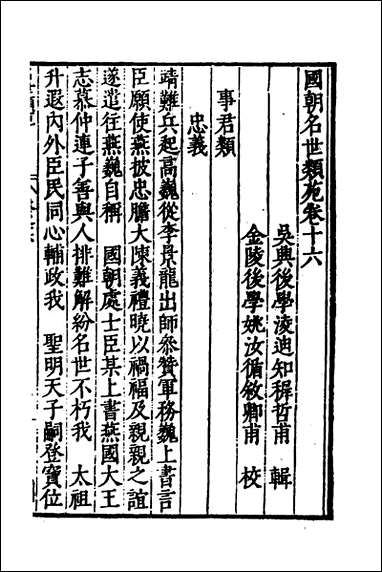 國朝名世類苑卷十六
吳興後學淩迪知穉哲甫 輯
金陵後學姚汝循敘卿甫 校
事君類
忠義
靖難兵起高巍從李景龍出師叅贊軍務巍上書言
臣願使燕披忠膽大陳義禮曉以禍福及親親之誼
遂遣往燕巍自稱 國朝處士臣某上書燕國大王
志慕仲連子善與人排難解紛名世不朽我 太祖
升遐内外臣民同心輔政我 聖明天子嗣登寶位